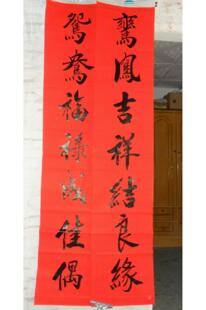 鸞鳳吉祥結良緣
鴛鴦福祿成佳偶